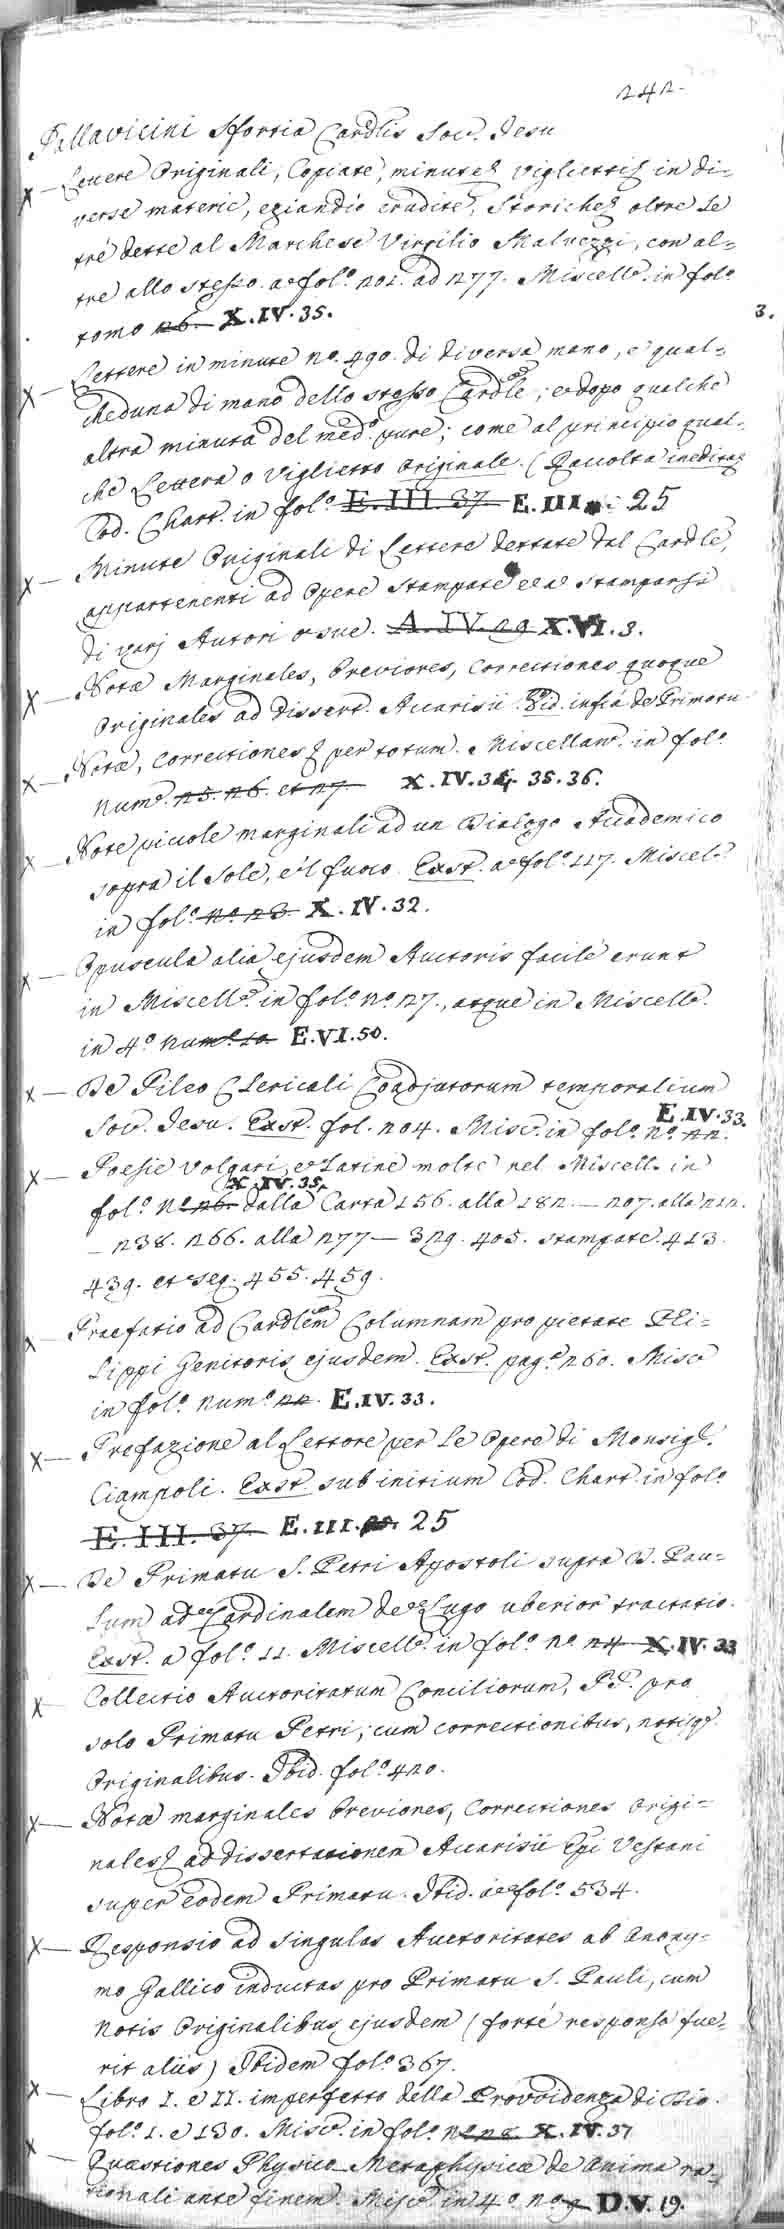 242.
Pallavicini Sfortia Cardlis Soc. Jesu
X — Lettere Originali, Copiate, minute, e viglietti, in di=
verse materie, eziandio erudite, Storiche, oltre le
tré dette al Marchese Virgilio Malvezzi, con al=
tre allo stesso. a fol.º 201. ad 277. Miscell. in fol.º
tomo 26. X.IV.35.
3.
X — Lettere in minute nº. 490. di diversa mano, e qual=
cheduna di mano dello stesso Cardle; e dopo qualche
altra minuta del med.º pure; come al principio qual=
che Lettera o Viglietto originale. (Raccolta inedita)
Cod. Chart. in fol.º E.III.37. E.III. 25
X — Minute Originali di Lettere dettate dal Cardle,
appartenenti ad Opere stampate e da stamparsi
di varj Autori e sue. A.IV.29 X.VI.3.
X — Notæ Marginales, breviores, correctiones quoque
Originales ad dissert. Accarisii. Vid. infra de Primatu
X — Notæ, correctiones per totum. Miscellan. in fol.º
Num.º 25. 26. et 27 X.IV.34. 35. 36.
X — Note piccole marginali ad un Dialogo Academico
sopra il Sole, e 'l fuoco. Exst. a fol.º 117. Miscel.
in fol.º nº. 23. X.IV.32.
X — Opuscula alia ejusdem Auctoris facilè erunt
in Miscell. in fol.º nº. 27., atque in Miscell.
in 4.º num.º 10. E.VI.50.
X — De Pileo Clericali Coadjutorum temporalium
Soc. Jesu. Exst. fol. 204. Misc. in fol.º nº. 22. E.IV.33.
X — Poesie volgari, e Latine molte nel Miscell. in
fol.º nº 26. X.IV.35. dalla Carta 156. alla 182. — 207. alla 212.
— 238. 266. alla 277 — 329. 405. stampate. 413.
439. et seq. 455. 459.
X — Praefatio ad Cardlem Columnam pro pietate Phi=
lippi Genitoris ejusdem. Exst. pag. 260. Misc
in fol.º num.º 22. E.IV.33.
X — Prefazione al Lettore per le Opere di Monsig.
Ciampoli. Exst. sub initium Cod. Chart. in fol.º
E.III.37. E.III. 25
X — De Primatu S. Petri Apostoli supra D. Pau=
lum ad Cardinalem de Lugo uberior tractatio.
Exst. a fol.º 11. Miscell. in fol.º nº. 24 X.IV.33
X Collectio Auctoritatum Conciliorum, PP. pro
solo Primatu Petri; cum correctionibus, notisq;
Originalibus. Ibid. fol.º 420.
X — Notæ marginales breviores, correctiones origi=
nales ad dissertationem Accarisii Epi Vestani
super eodem Primatu. Ibid. a fol.º 534.
X — Responsio ad singulas Auctoritates ab Anony=
mo Gallico inductas pro Primatu S. Pauli, cum
notis Originalibus ejusdem (fortè responsa fue=
rit aliis) Ibidem fol.º 367.
X — Libro I. e II. imperfetto della Provvidenza di Dio.
fol.º 1. e 130. Misc. in fol.º nº 28. X.IV.37
X — Quæstiones Physico Metaphysicæ de Anima ra=
tionali ante finem. Misc. in 4.º nº 9 D.V.19.